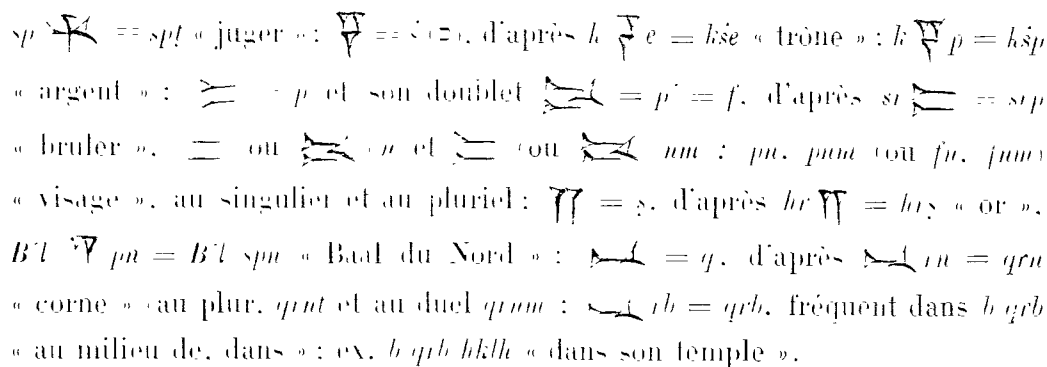 sp 𐎉 = spṭ « juger » : 𐎝 = ś (ס), d'après k 𐎝 e = kśe « trône » : k 𐎝 p = kśp
« argent » : 𐎔 = p et son doublet = p' = f, d'après sr 𐎔 = srp
« bruler », 𐎔 ou n et 𐎔 (ou nm : pn, pnm (ou fn, fnm)
« visage », au singulier et au pluriel : 𐎕 = ṣ, d'après hr 𐎕 = hrṣ « or »,
B'l 𐎕 pn = B'l ṣpn « Baal du Nord » : 𐎖 = q, d'après 𐎖 rn = qrn
« corne » (au plur. qrnt et au duel qrnm : 𐎖 rb = qrb, fréquent dans b qrb
« au milieu de, dans » : ex. b qrb hklh « dans son temple ».